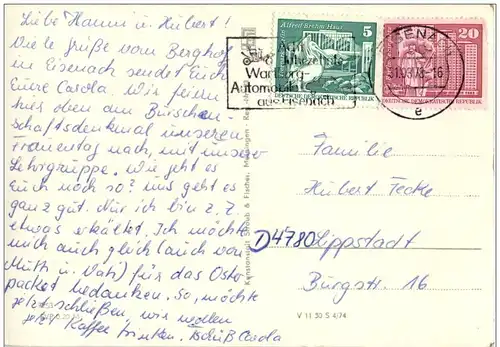 Liebe Hanni u. Hubert!
Viele Grüße vom Berghof
in Eisenach sendet Euch
Eure Carola. Wir feiern
hier oben am Burschen-
schaftsdenkmal unseren
Frauentag nach, mit unserer
Lehrgruppe. Wie geht es
Euch noch so? uns geht es
ganz gut. Nur ich bin z. Z.
etwas erkältet. Ich möchte
mich auch gleich (auch von
Mutti u. Vati) für das Oster-
packet bedanken. So, möchte
jetzt schließen, wir wollen
jetzt Kaffee trinken. Tschüß Carola
Kunstanstalt Straub & Fischer, Meiningen
Acht
Jahrzehnte
Wartburg-
Automobile
aus Eisenach
Alfred Brehm Haus
5
DEUTSCHE DEMOKRATISCHE REPUBLIK
20
DEUTSCHE DEMOKRATISCHE REPUBLIK
e
Familie
Hubert Fecke
D4780 Lippstadt
Burgstr. 16
V 11 50 S 4/74